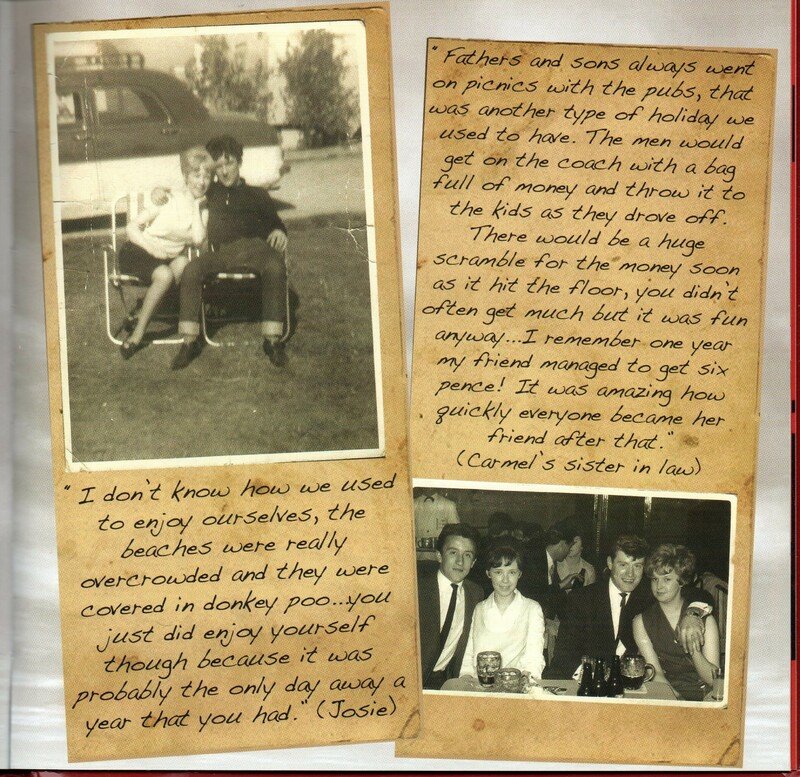 " I don't know how we used
to enjoy ourselves, the
beaches were really
overcrowded and they were
covered in donkey poo...you
just did enjoy yourself
though because it was
probably the only day away a
year that you had." (Josie)
" Fathers and sons always went
on picnics with the pubs, that
was another type of holiday we
used to have. The men would
get on the coach with a bag
full of money and throw it to
the kids as they drove off.
There would be a huge
scramble for the money soon
as it hit the floor, you didn't
often get much but it was fun
anyway...I remember one year
my friend managed to get six
pence! It was amazing how
quickly everyone became her
friend after that."
(Carmel's sister in law)